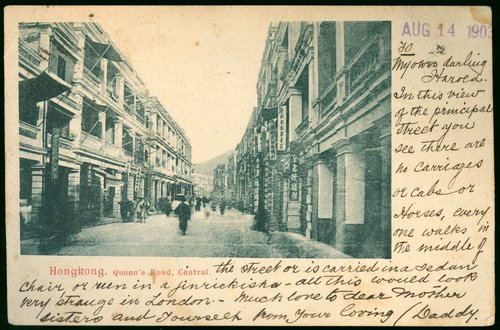 AUG 14 190
To
My own darling
Harold.
In this view
of the principal
street you
see there are
no carriages
or cabs or
Horses, every
one walks in
the middle of
Hongkong. Queen's Road, Central.
the street or is carried in a Sedan
chair, or run in a jinrickisha - all this would look
very strange in London - Much love to dear Mother
sisters and yourself from your loving Daddy.